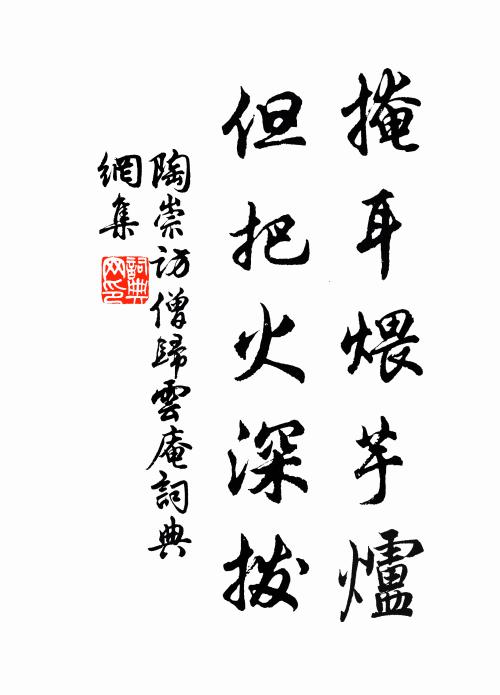 掩耳煨芋爐
但把火深拨
陶崇訪僧歸雲庵詞典
網集
詞典
网印